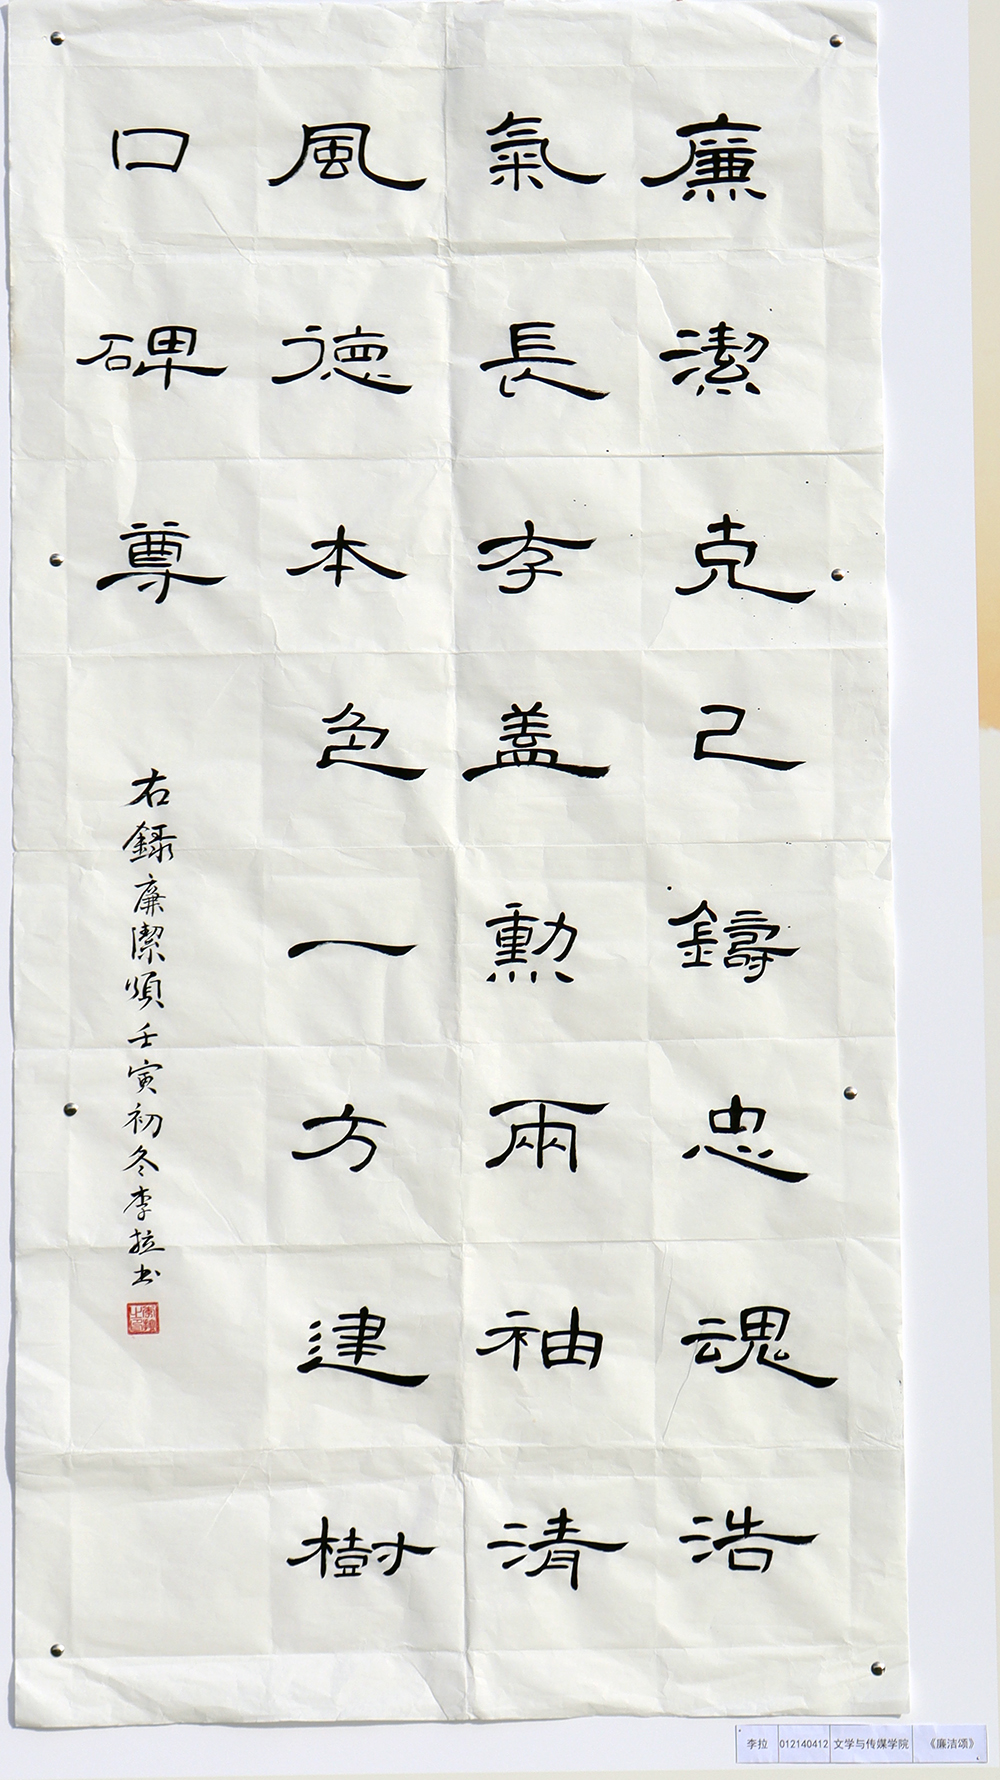 廉潔克己鑄忠魂浩
氣長存蓋勳兩袖清
風德本色一方建樹
口碑尊
右錄廉潔頌壬寅初冬李拉书
李拉 012140412 文学与传媒学院 《廉洁颂》